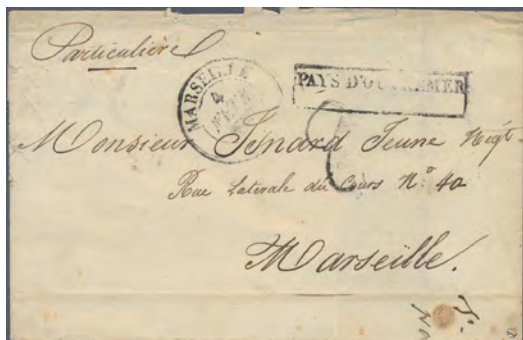 Particulière
MARSEILLE
PAYS D'OUTREMER
Monsieur Jenard Jeune Negt
Rue Latérale du Cours N.o 40
Marseille.